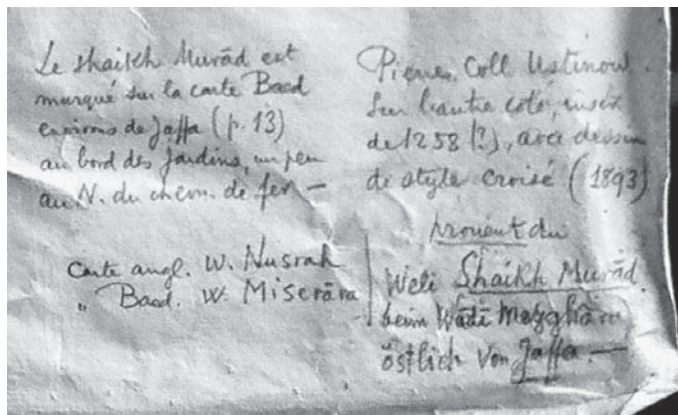 Le Shaikh Murād est
marqué sur la carte Baed
environs de Jaffa (p. 13)
au bord des jardins, un peu
au N. du chem. de fer —
Carte angl. W. Nusrah
" Baed. W. Miserāra
Pierres Coll Ustinow.
Sur l'autre coté, inscr
de 1258 (?), avec dessin
de style croisé (1893)
provient du
Weli Shaikh Murād
beim Wādi
östlich von Jaffa. —